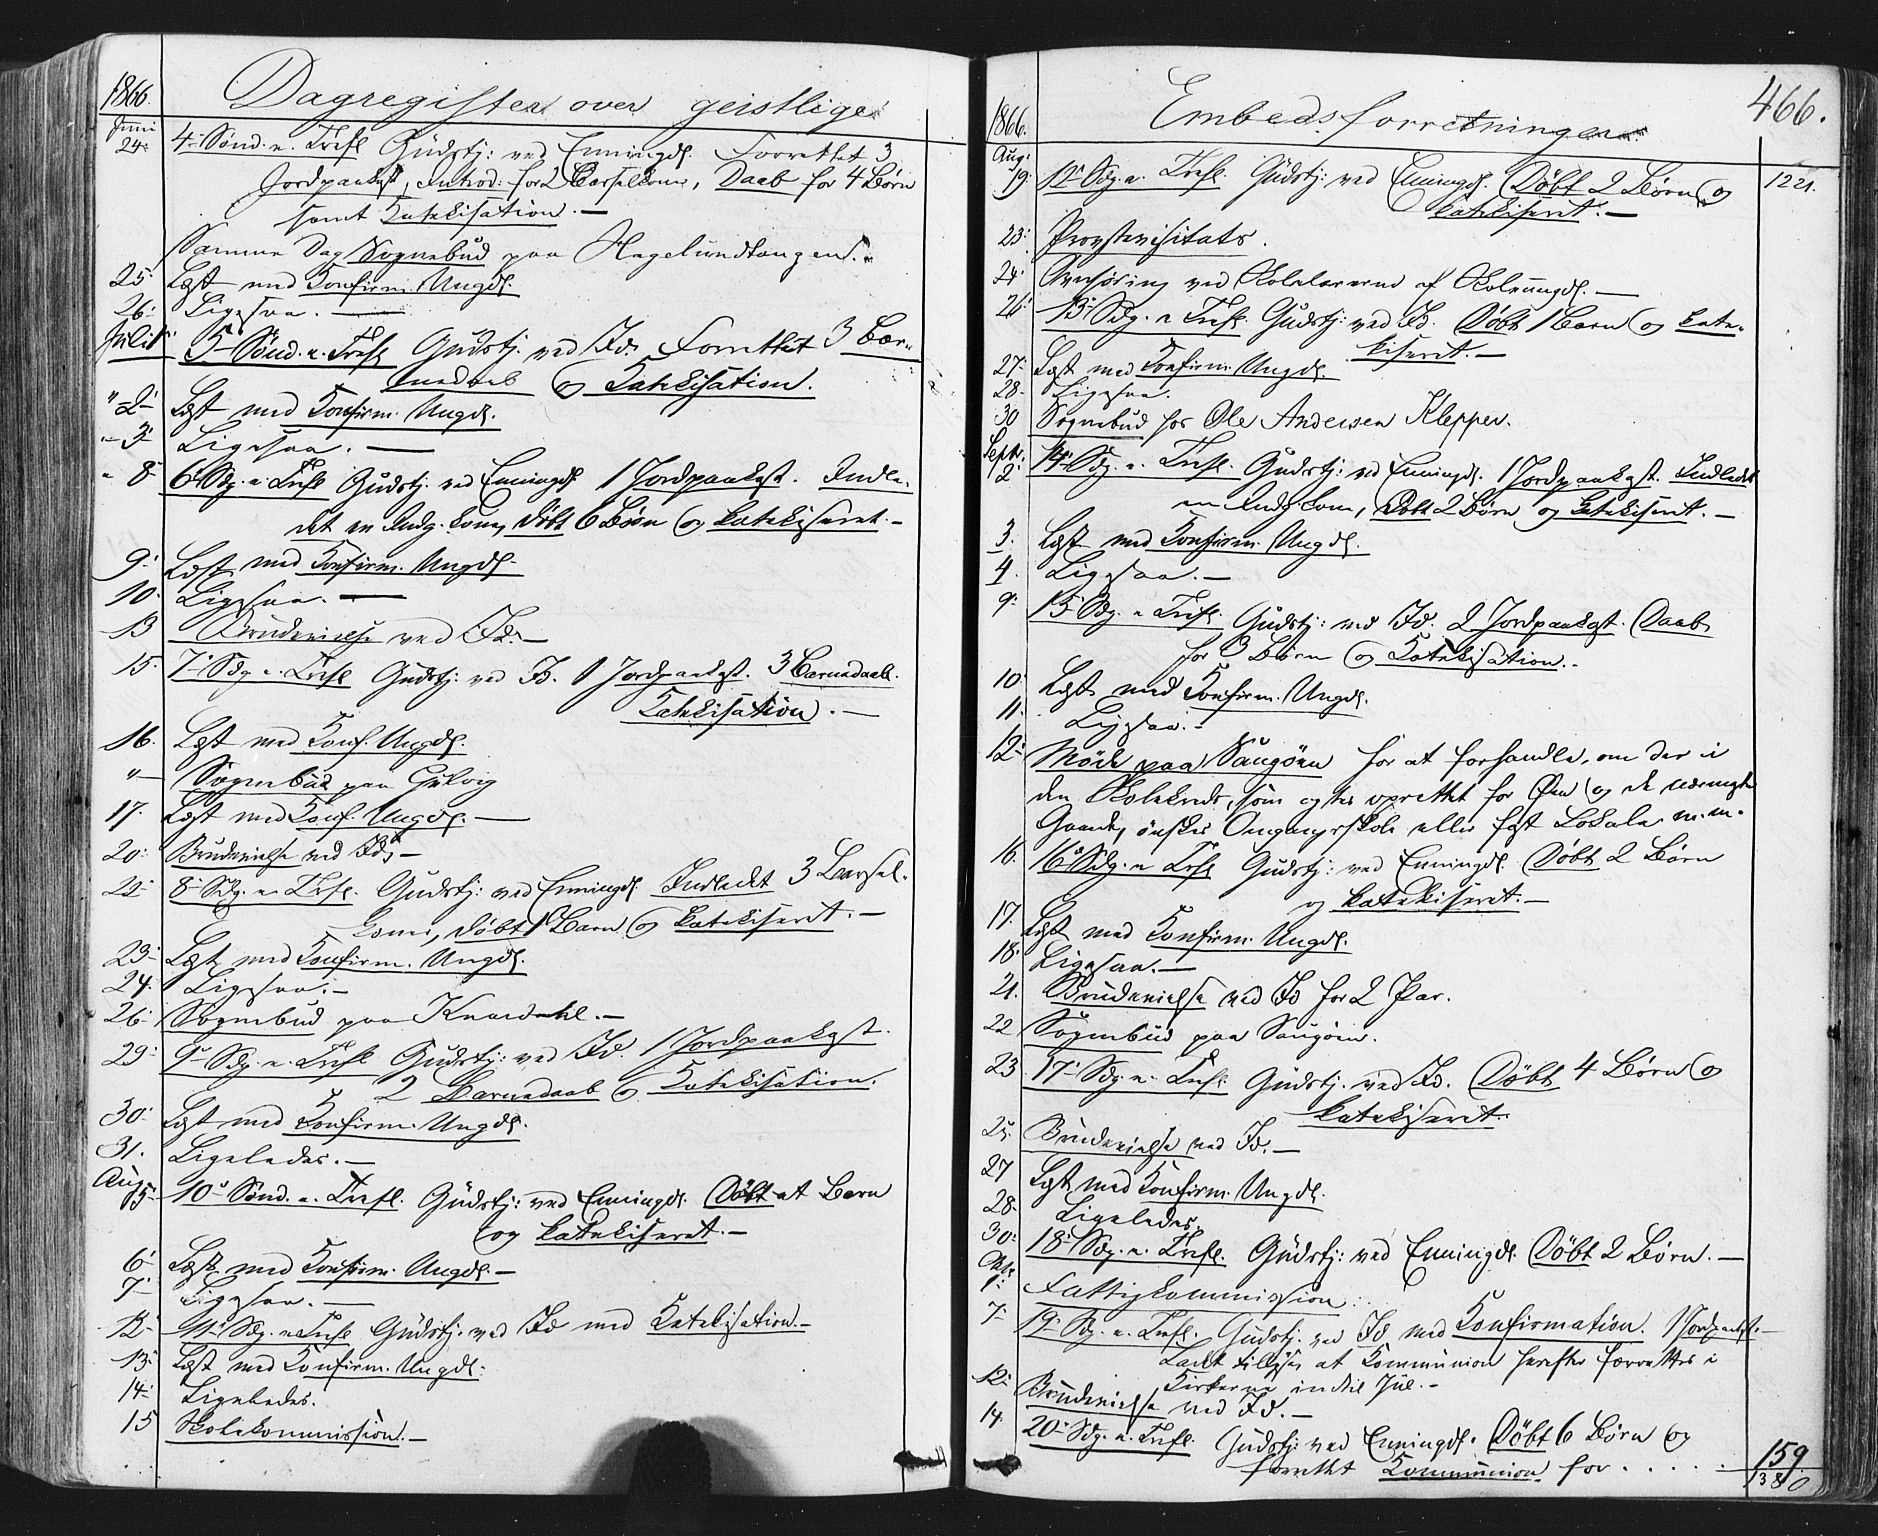 1866.
Dagregister over geistlige
Juni
24. 4 Sønd. e. Trefl Gudstj: ved Enningd. Forrettet 3
Jordpaakast, Introd: for 2 Barselkoner, Daab for 4 Børn
samt Katekisation. —
Samme Dag Sognebud paa Hagelundtangen.
25 Læst med Konfirm. Ungd.
26. Ligesaa. —
Juli 1. 5 Sønd. e. Trefl Gudstj. ved Id. Forrettet 3 Barn
nedaab og Katekisation.
" 2 Læst med Konfirm. Ungd.
" 3 Ligesaa. —
" 8 6 Sdg. e. Trefl Gudstj. ved Enningd. 1 Jordpaakast. Indle-
det en Indg. Kone, døbt 6 Børn og katekiseret. —
9. Læst med Konfirm. Ungd.
10. Ligesaa. —
13 Brudevielse ved Id. —
15. 7 Sdg e. Trefl Gudstj. ved Id. 1 Jordpaakast. 3 Barnedaab.
Katekisation. —
16. Læst med Konf. Ungd.
" — Sognebud paa
17. Læst med Konf. Ungd. —
20. Brudevielse ved Id. —
22 8 Sdg. e. Trefl. Gudstj: ved Enningd. Indledet 3 Barsel-
koner, døbt 1 Barn og katekiseret. —
23 Læst med Konfirm. Ungd.
24. Ligesaa. —
26 Sognebud paa Knardahl. —
29 9 Sdg. e. Trefl Gudstj: ved Id. 1 Jordpaakast.
2 Barnedaab og Katekisation.
30. Læst med Konfirm. Ungd.
31. Ligeledes. —
Aug.
5 10 Sønd. e. Trefl. Gudstj: ved Enningd. Døbt et Barn
og katekiseret. —
6 Læst med Konfirm. Ungd. —
7 Ligesaa. —
12 11 Sdg. e. Trefl Gudstj. ved Id med Katekisation. —
13. Læst med Konfirm. Ungd.
14. Ligeledes.
15 Skolekommission. —
1866.
Embedsforretninger.
466.
Aug.
19. 12 Sdg. e. Trefl. Gudstj: ved Enningd. Døbt 2 Børn og 1221.
katekiseret. —
23. Provstevisitats.
24. ved Skolelærerne af Skoleungd. —
26. 13 Sdg. e Trefl. Gudstj: ved Id. Døbt 1 Barn og kate-
kiseret. —
27. Læst med Konfirm. Ungd.
28. Ligesaa.
30 Sognebud hos Ole Andersen Klepper.
Septr.
2. 14 Sdg. e. Trefl. Gudstj: ved Enningd. 1 Jordpaakast. Indledet
en Indg. Kone, Døbt 2 Børn og katekiseret. —
3. Læst med Konfirm. Ungd.
4. Ligesaa. —
9. 15 Sdg. e Trefl. Gudstj: ved Id. 2 Jordpaakast. Daab
for 3 Børn og Katekisation.
10. Læst med Konfirm. Ungd.
11. Ligesaa. —
12. Møde paa Saugøen for at forhandle, om der i
den Skolekreds, som agtes oprettet for Øen og de nærmeste
Gaarde, ønskes Omgangsskole eller fast Lokale m.m.
16. 16 Sdg. e Trefl Gudstj: ved Enningd. Døbt 2 Børn
og katekiseret. —
17. Læst med Konfirm. Ungd.
18. Ligesaa. —
21. Brudevielse ved Id for 2 Par.
22 Sognebud paa Saugøen.
23 17 Sdg. e. Trefl. Gudstj. ved Id. Døbt 4 Børn og
katekiseret.
25. Brudevielse ved Id. —
27 Læst med Konfirm. Ungd.
28. Ligeledes.
30. 18 Sdg. e. Trefl. Gudstj: ved Enningd. Døbt 2 Børn. —
Oktr.
1. Fattigkommission.
7. 19 Sdg. e. Trefl. Gudstj. ved Id med Konfirmation. 1 Jordpaak. —
Ladt tillyse, at Kommunion herefter forrettes i
Kirkerne indtil Jul. —
12. Brudevielse ved Id. —
14. 20 Sdg. e. Trefl. Gudstj: ved Enningd. Døbt 6 Børn og
forrettet Kommunion for . . . . . 159
1380